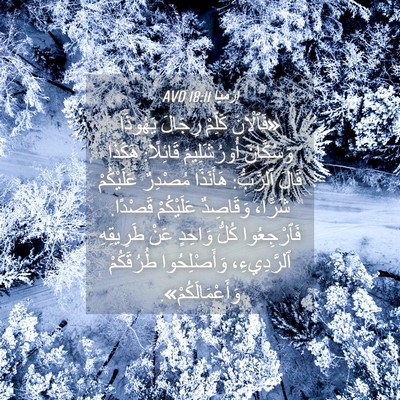 إرميا 18:11 AVD
«فَٱلْآنَ كَلِّمْ رِجَالَ يَهُوذَا
وَسُكَّانَ أُورُشَلِيمَ قَائِلًا: هَكَذَا
قَالَ ٱلرَّبُّ: هَأَنَذَا مُصْدِرٌ عَلَيْكُمْ
شَرًّا، وَقَاصِدٌ عَلَيْكُمْ قَصْدًا.
فَٱرْجِعُوا كُلُّ وَاحِدٍ عَنْ طَرِيقِهِ
ٱلرَّدِيءِ، وَأَصْلِحُوا طُرُقَكُمْ
وَأَعْمَالَكُمْ».